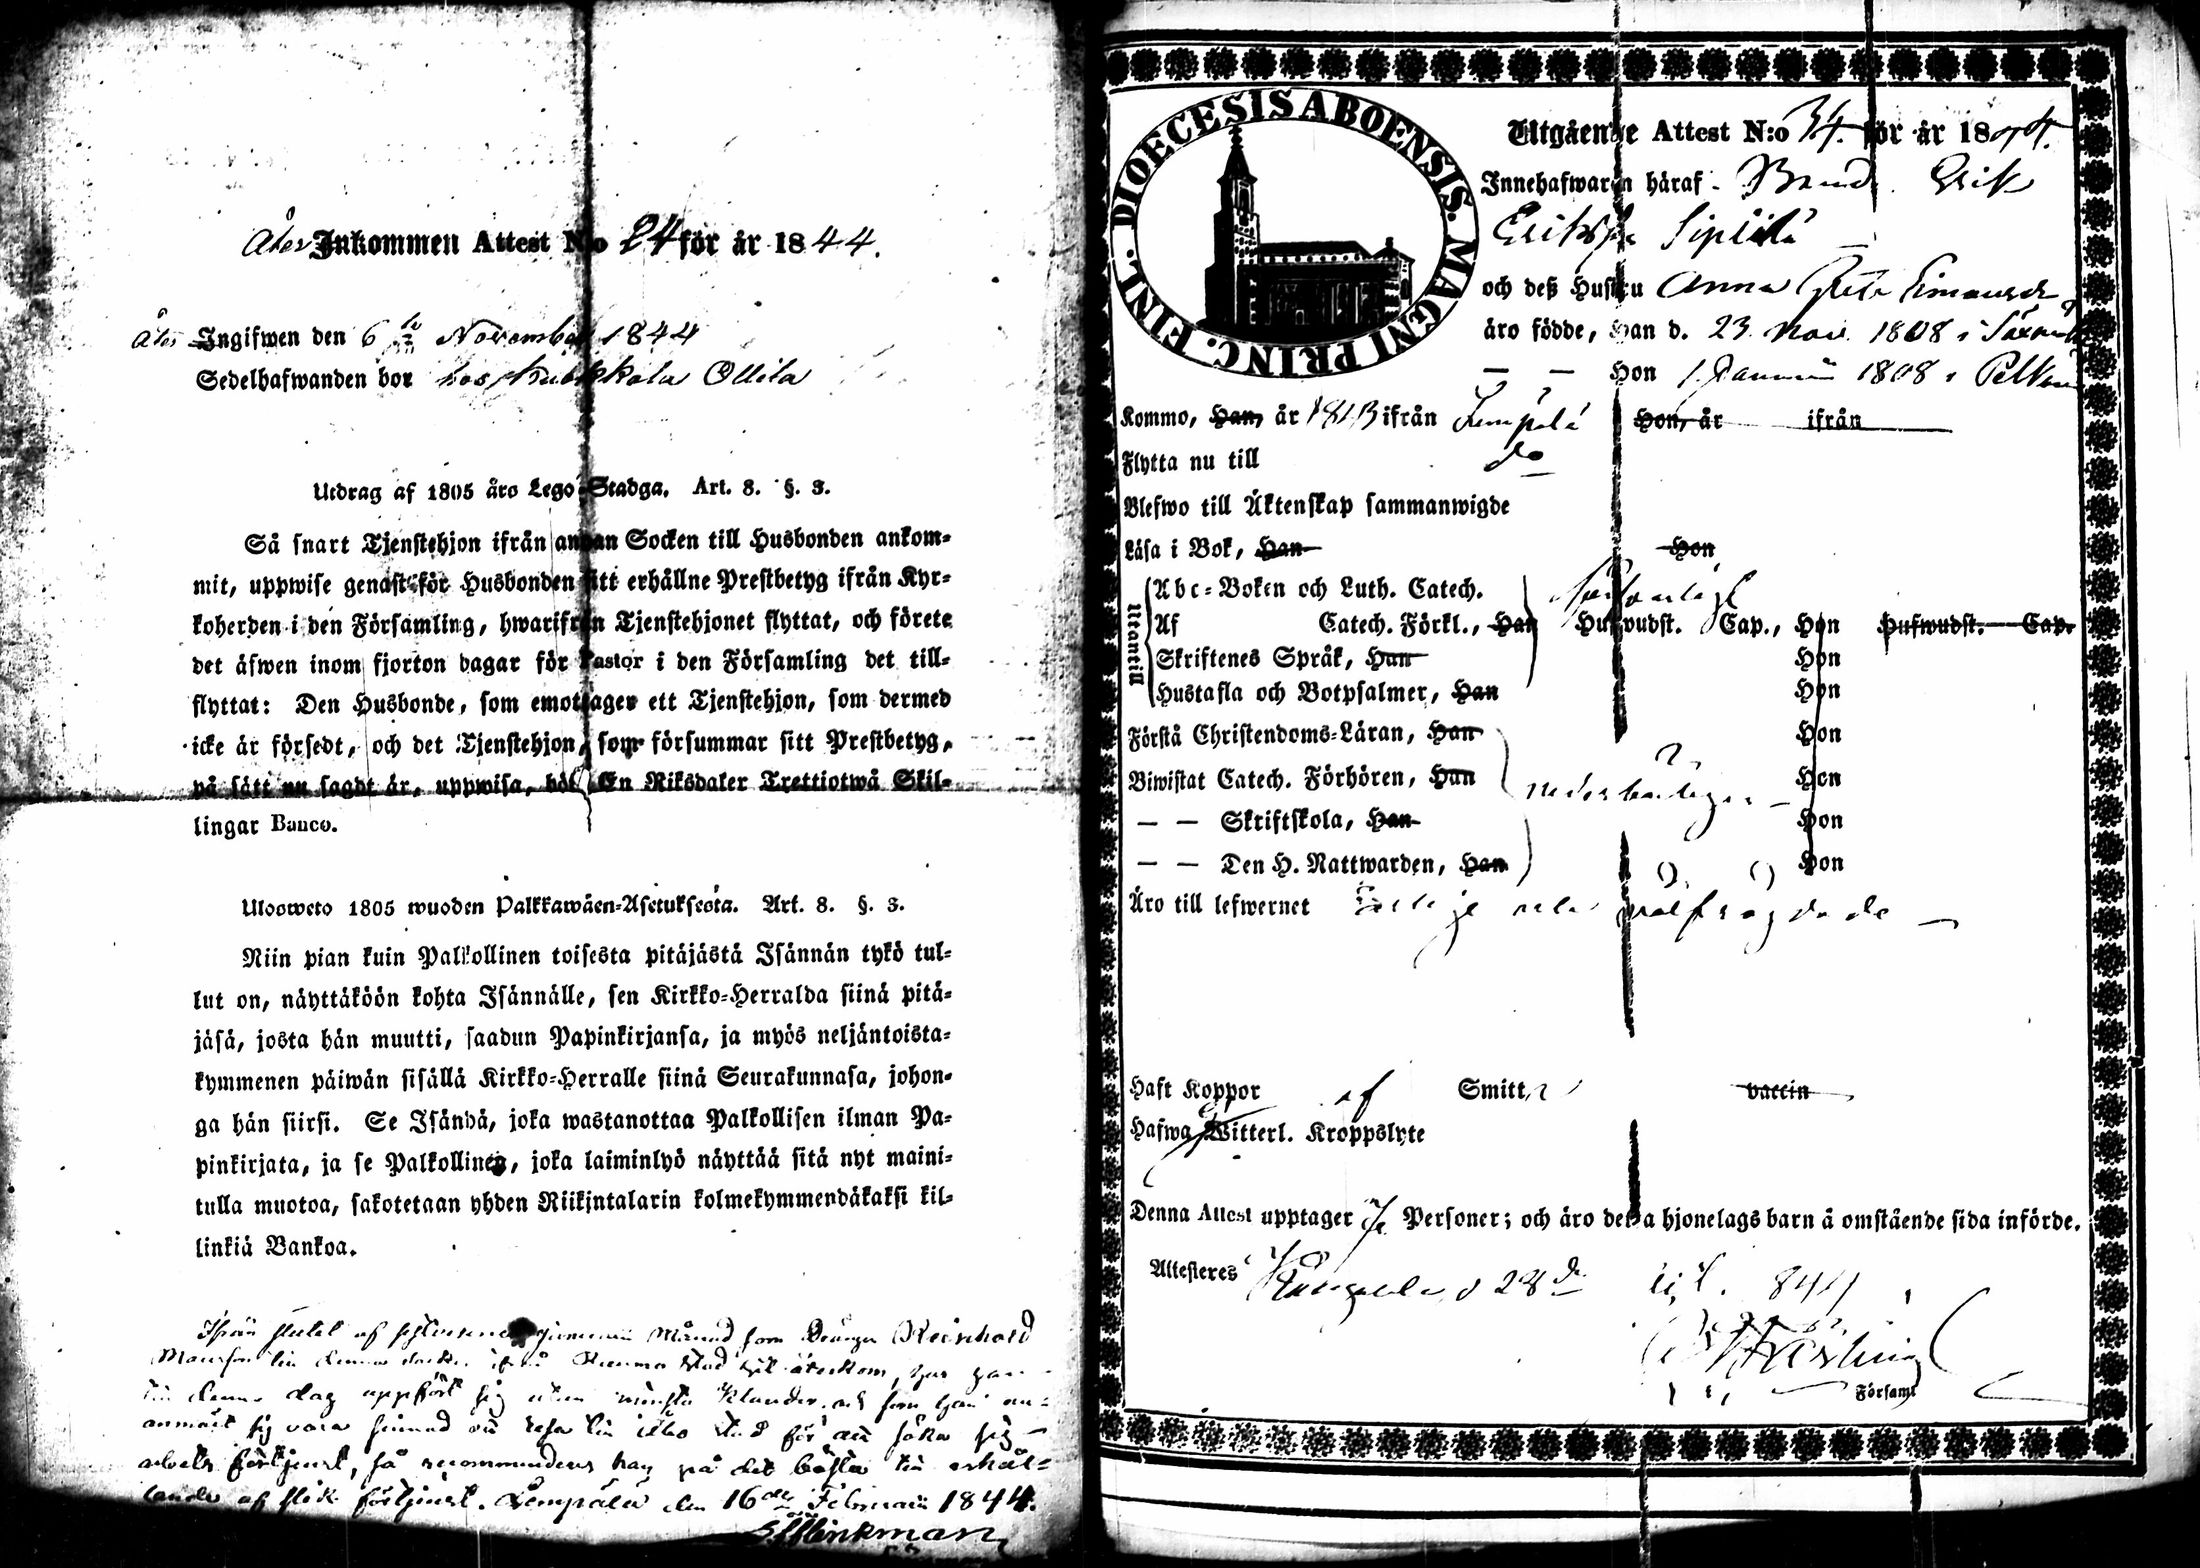 Åter Inkommen Attest N:o 24 för år 1844.
Åter Ingifwen den 6 November 1844
Sedelhafwanden bor hos Kuokkala Ollila
Utdrag af 1805 års Lego-Stadga. Art. 8. §. 3.
Så snart Tjenstehjon ifrån annan Socken till Husbonden ankom-
mit, uppwise genast för Husbonden sitt erhållne Prestbetyg ifrån Kyr-
koherden i den Församling, hwarifrån Tjenstehjonet flyttat, och förete
det äfwen inom fjorton dagar för Pastor i den Församling det till-
flyttat: Den Husbonde, som emottager ett Tjenstehjon, som dermed
icke är försedt, och det Tjenstehjon, som försummar sitt Prestbetyg,
på sätt nu sagdt är, uppwisa, böte En Riksdaler Trettiotwå Skil-
lingar Banco.
Ulosweto 1805 wuoden Palkkawäen-Asetuksesta. Art. 8. §. 3.
Niin pian kuin Palkollinen toisesta pitäjästä Isännän tykö tul-
lut on, näyttäköön kohta Isännälle, sen Kirkko-Herralda siinä pitä-
jäsä, josta hän muutti, saadun Papinkirjansa, ja myös neljäntoista-
kymmenen päiwän sisällä Kirkko-Herralle siinä Seurakunnasa, johon-
ga hän siirsi. Se Isändä, joka wastanottaa Palkollisen ilman Pa-
pinkirjata, ja se Palkollinen, joka laiminlyö näyttää sitä nyt maini-
tulla muotoa, sakotetaan yhden Riikintalarin kolmekymmendäkaksi kil-
linkiä Bankoa.
Ifrån slutet af sistverne Månad som Drängen Reinhold
till denna socken ifrån Rauma stad återkom, har han
till denna dag uppfört sig utan minsta klander, och som han nu
anmält sig vara sinnad att resa till Åbo stad för att söka sig
arbets förtjenst, så recommenderas han på det bästa till erhål-
lande af slik förtjenst. Lempälä den 16de Februarii 1844.
Winkman
DIOECESIS ABOENSIS. MAGNI PRINC. FINL.
Utgående Attest N:o 34. för år 1844.
Innehafwaren häraf Bond. Erik
Eriksson Sipilä
och deß Hustru Anna Greta Simonsdr
äro födde, Han d. 23 Nov. 1808 i
— — Hon 1 Januari 1808 i Pelkäne
Kommo, Han, år 1843 ifrån Lempälä Hon, år ifrån
Flytta nu till do
Blefwo till Äktenskap sammanwigde
Läsa i Bok, Han Hon
Utantill
Abc-Boken och Luth. Catech. försvarligt
Af Catech. Förkl., Han Hufwudst. Cap., Hon Hufwudst. Cap.
Skriftenes Språk, Han Hon
Hustafla och Botpsalmer, Han Hon
Förstå Christendoms-Läran, Han Hon
Biwistat Catech. Förhören, Han Hon
— — Skriftskola, Han Hon
— — Den H. Nattwarden, Han Hon
Äro till lefwernet ärlige och välfrägdade
Haft Koppor af Smitta vaccin
Hafwa Witterl. Kroppslyte
Denna Attest upptager Personer; och äro detta hjonelags barn å omstående sida införde.
Attesteres Kangasala d 28de
Församl